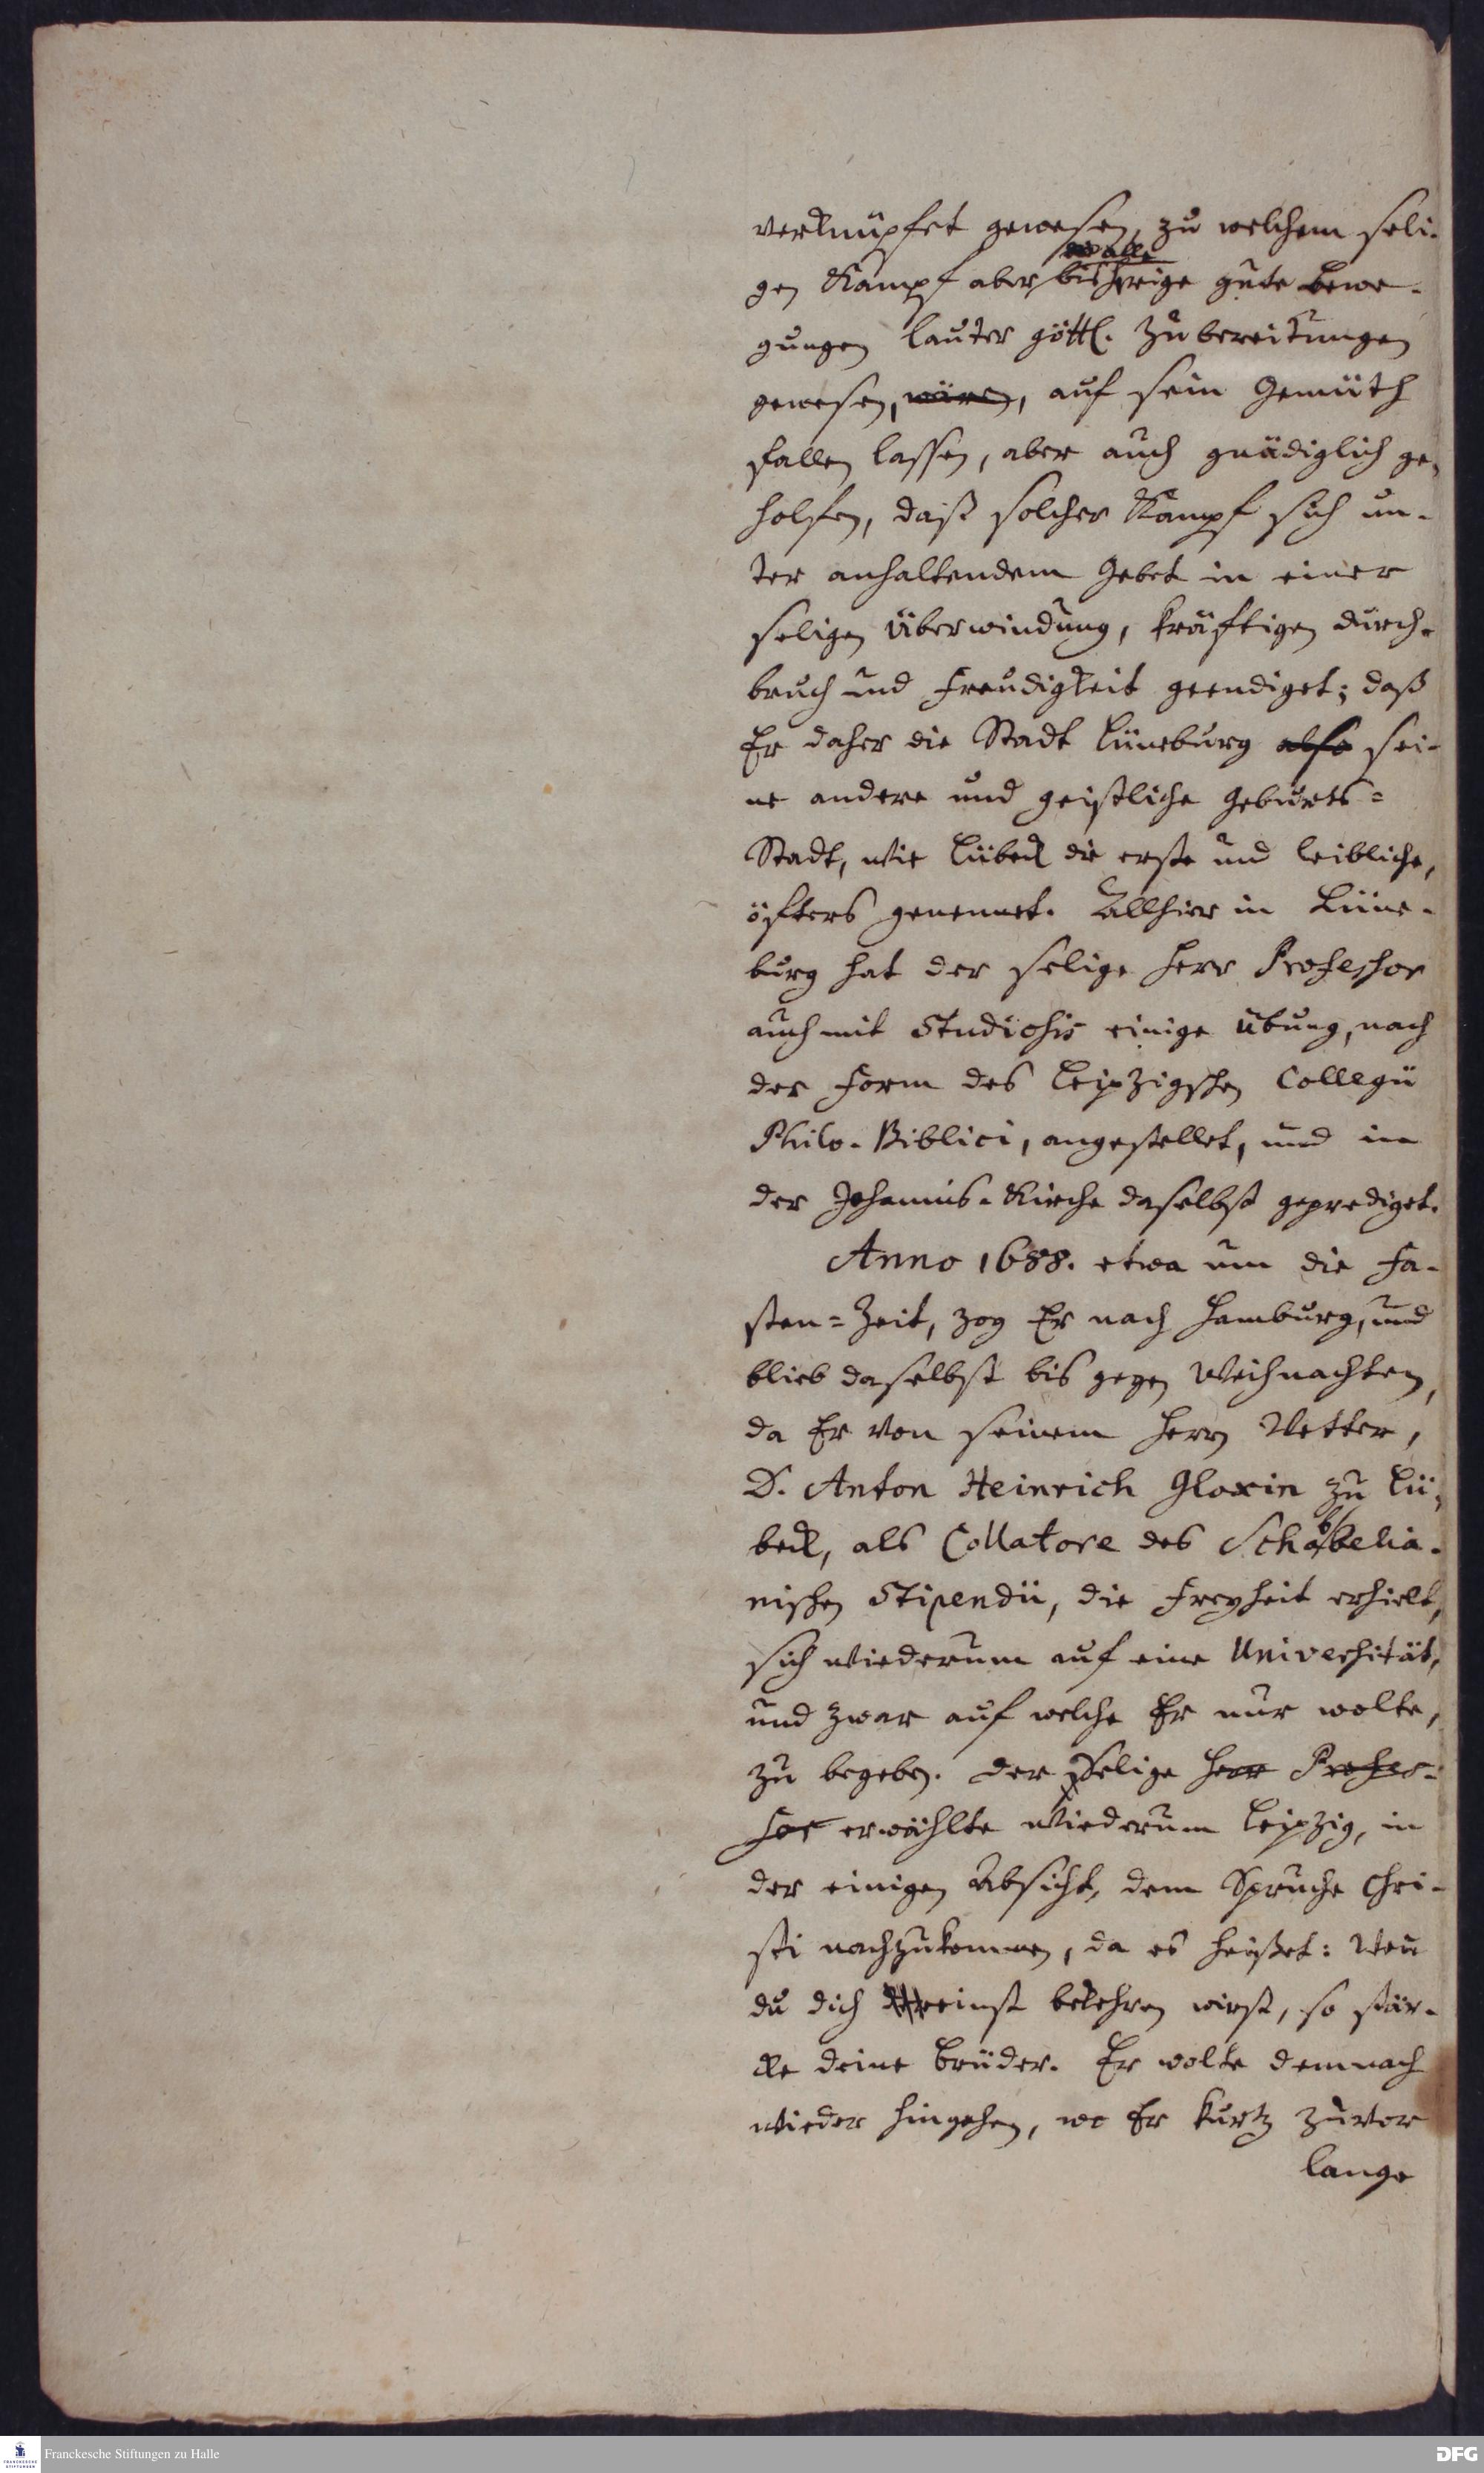 verknüpfet gewesen, zu welchem seli-
gen Kampf aber alle bisherige gute bewe-
gungen lauter göttl. Zubereitungen
gewesen, wären, auf sein Gemüth
fallen lassen, aber auch gnädiglich ge-
holfen, daß solcher Kampf sich un-
ter anhaltendem Gebet in einer
seligen Überwindung, kräftigen durch-
bruch und Freudigkeit geendiget; daß
Er daher die Stadt Lüneburg also sei-
ne andere und geistliche Geburts=
Stadt, wie Lübeck die erste und leibliche,
öfters genennet. Allhier in Lüne-
burg hat der selige Herr Professor
auch mit Studiosis einige übung, nach
der Form des Leipzigschen Collegii
Philo-Biblici, angestellet, und in
der Johannis-Kirche daselbst geprediget.
Anno 1688. etwa um die Fa-
sten=Zeit, zog Er nach Hamburg, und
blieb daselbst bis gegen Weihnachten,
da Er von seinem Herrn Vetter,
D. Anton Heinrich Gloxin zu Lü-
beck, als Collatore des Schabbelia-
nischen Stipendii, die Freyheit erhielt,
sich wiederum auf eine Universität,
und zwar auf welche Er nur wolte,
zu begeben. Der Selige Herr Profes-
sor erwählte wiederum Leipzig, in
der einigen Absicht, dem Spruche Chri-
sti nachzukommen, da es heißet: Wenn
du dich dereinst bekehren wirst, so stär-
cke deine brüder. Er wolte demnach
wieder hingehen, wo Er kurtz zuvor
lange
Franckesche Stiftungen zu Halle
DFG